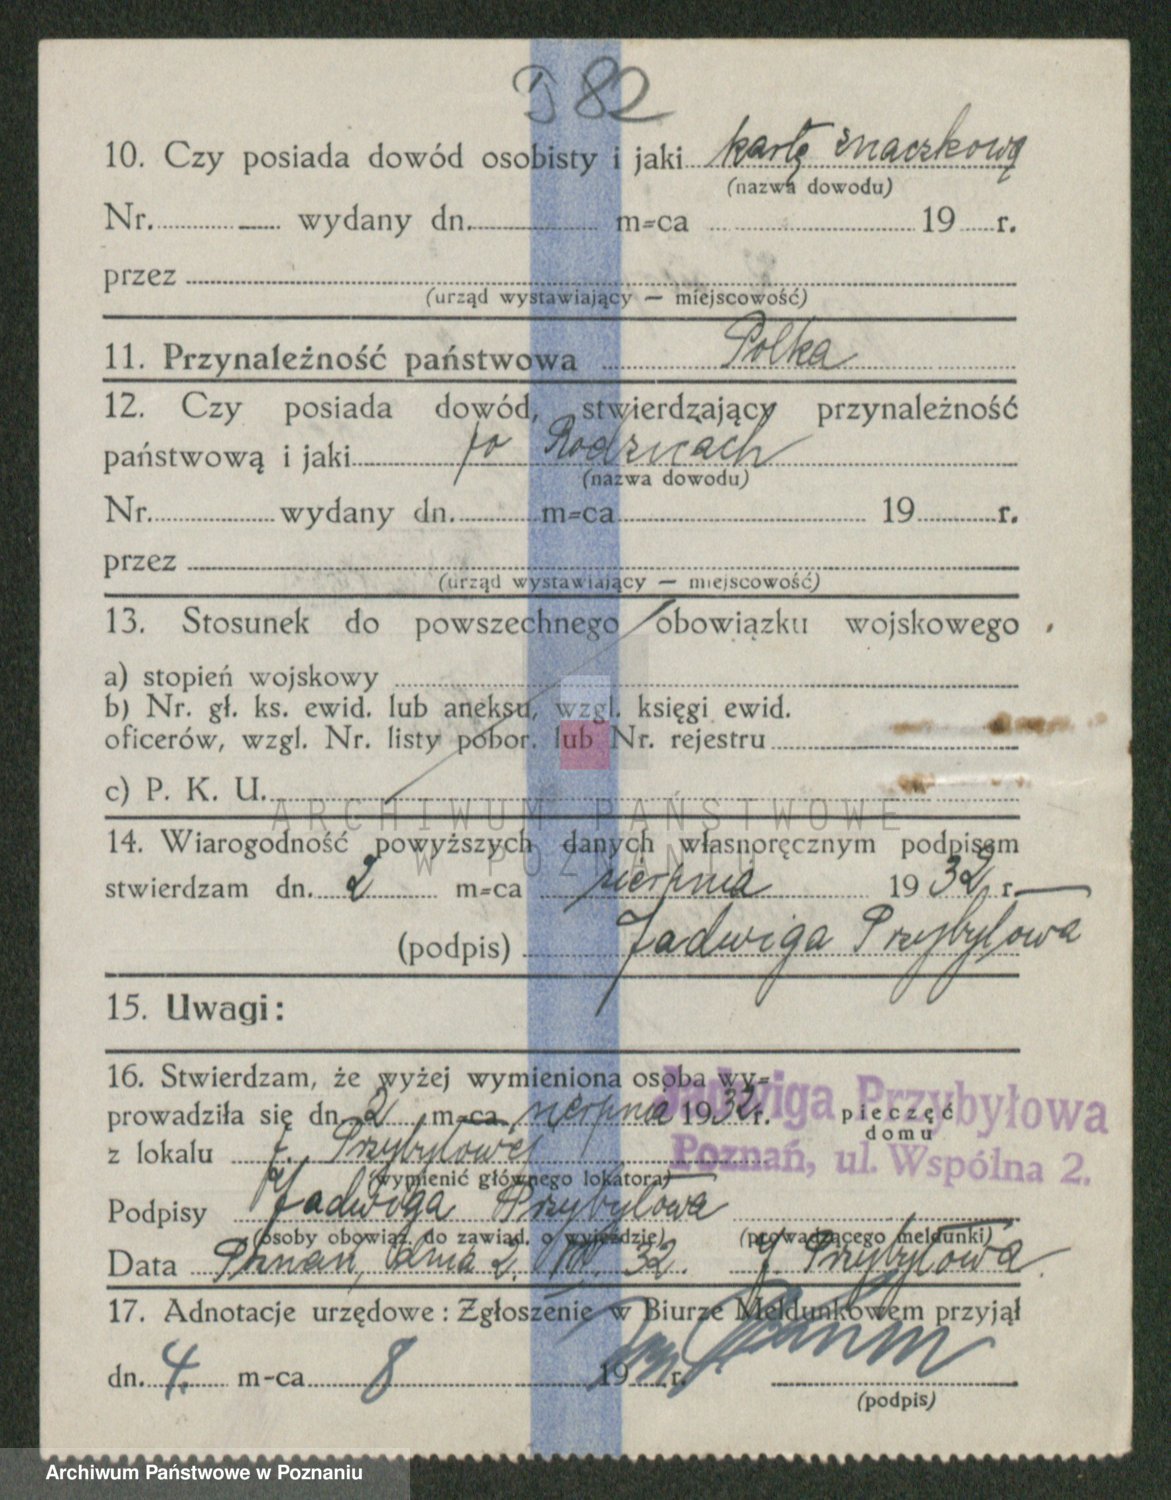 D 82
10. Czy posiada dowód osobisty i jaki kartę znaczkową
(nazwa dowodu)
Nr. — wydany dn. m-ca 19 r.
przez
(urząd wystawiający — miejscowość)
11. Przynależność państwowa Polka
12. Czy posiada dowód, stwierdzający przynależność
państwową i jaki po Rodzicach
(nazwa dowodu)
Nr. wydany dn. m-ca 19 r.
przez
(urząd wystawiający — miejscowość)
13. Stosunek do powszechnego obowiązku wojskowego
a) stopień wojskowy
b) Nr. gł. ks. ewid. lub aneksu, wzgl. księgi ewid.
oficerów, wzgl. Nr. listy pobor. lub Nr. rejestru
c) P. K. U.
ARCHIWUM PAŃSTWOWE
W POZNANIU
14. Wiarogodność powyższych danych własnoręcznym podpisem
stwierdzam dn. 2 m-ca sierpnia 1932 r.
(podpis) Jadwiga Przybyłowa
15. Uwagi:
16. Stwierdzam, że wyżej wymieniona osoba wy-
prowadziła się dn. 2 m-ca sierpnia 1932 r.
pieczęć
domu
Jadwiga Przybyłowa
Poznań, ul. Wspólna 2.
z lokalu J. Przybyłowej
(wymienić głównego lokatora)
Podpisy Jadwiga Przybyłowa
(osoby obowiąz. do zawiad. o wyjeździe) (prowadzącego meldunki)
Data Poznań, dnia 2. VIII. 32. J. Przybyłowa.
17. Adnotacje urzędowe: Zgłoszenie w Biurze Meldunkowem przyjął
dn. 4. m-ca 8 19 r.
(podpis)
Archiwum Państwowe w Poznaniu